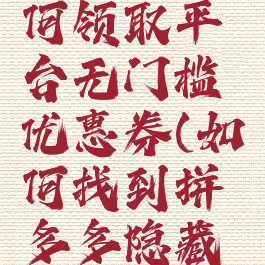 何领取平
台无门槛
优惠券(如
何找到拼
多多隐藏